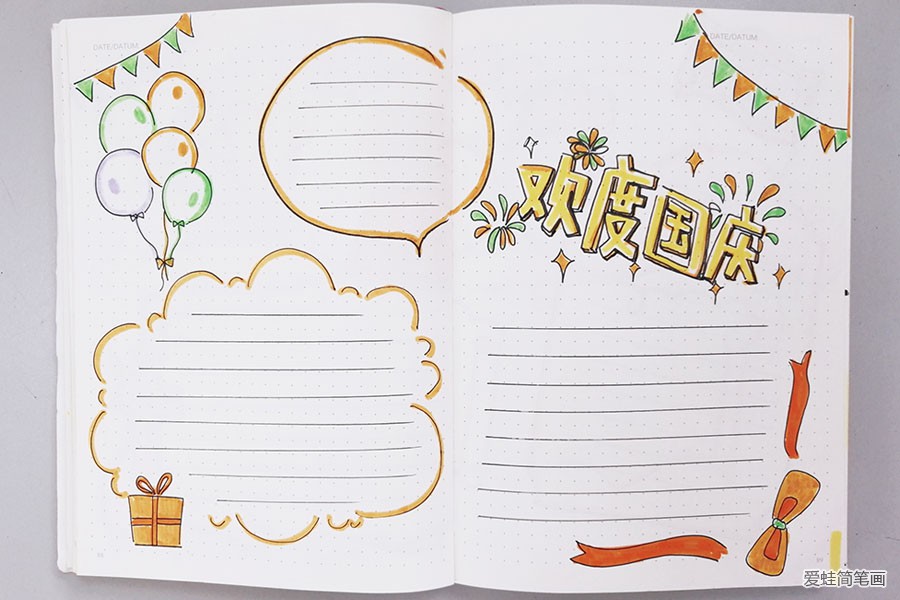 DATE/DATUM
DATE/DATUM
欢度国庆
爱蛙简笔画